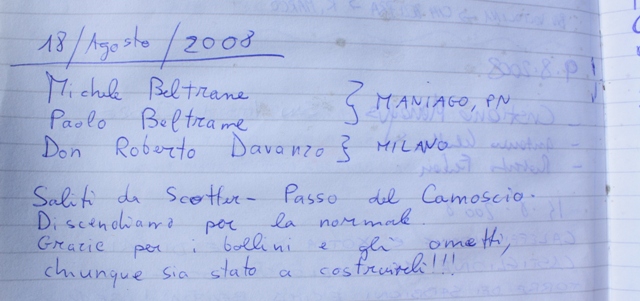 18/Agosto/2008
Michele Beltrame } MANIAGO, PN
Paolo Beltrame
Don Roberto Davanzo } MILANO
Saliti da Scotter - Passo del Camoscio.
Discendiamo per la normale.
Grazie per i bollini e gli ometti,
chiunque sia stato a costruirli!!!
9.8.2008